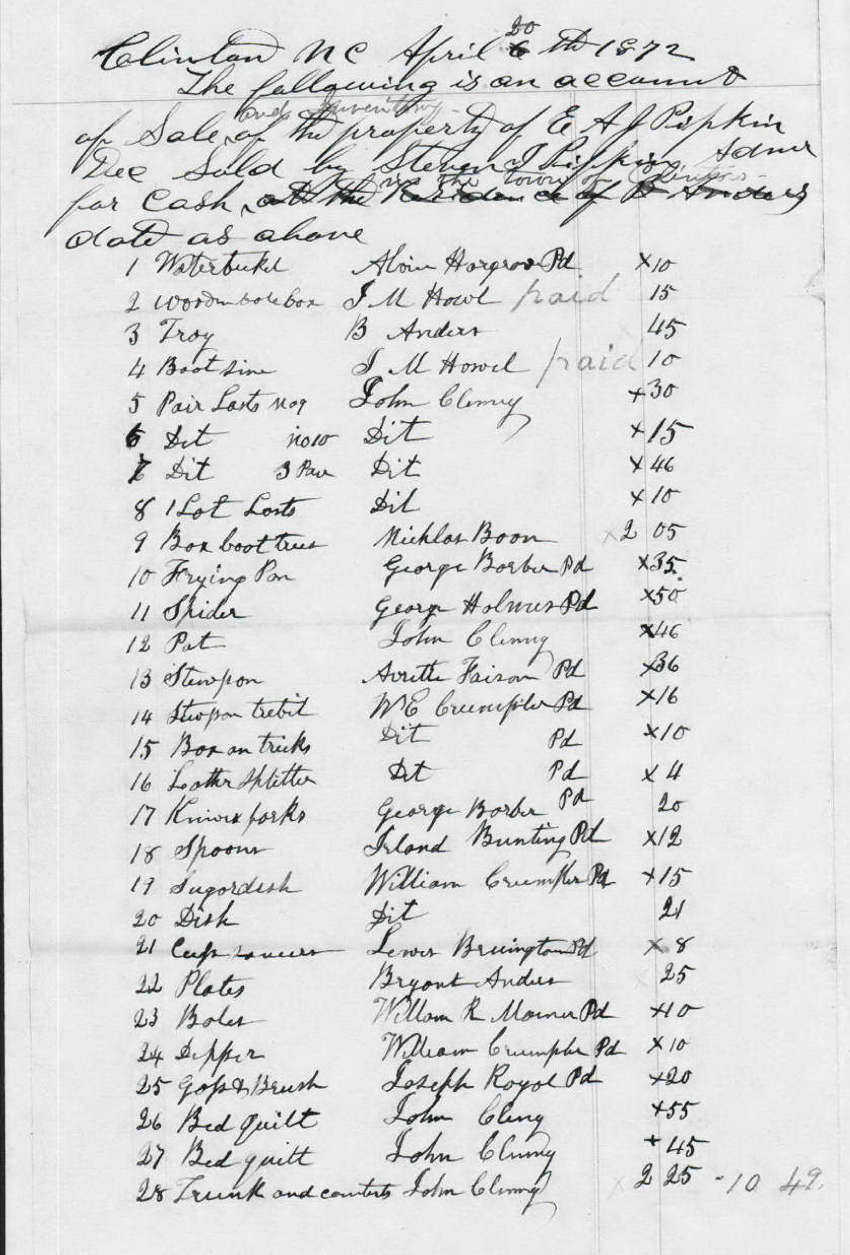 Clinton NC April 20 th 1872
The following is an account
and Inventory
of Sale of the property of E A J Pipkin
Dec Sold by Steven J Pipkin Admr
in the town of Clinton
for Cash at the Residence of B Anders
date as above
1 Waterbucket Alvin Hargrove Pd x10
2 wooden box J M Howl paid 15
3 Troy B Anders 45
4 Boot J M Howel paid 10
5 Pair Lasts no9 John Clenny x30
6 Dit no10 Dit x15
7 Dit 3 Pare Dit x46
8 1 Lot Lasts Dit x10
9 Box boot trees Nicklas Boon x2 05
10 Frying Pan George Borber Pd x35
11 Spider George Holmes Pd x50
12 Pat John Clenny x46
13 Stewpan Avritte Faison Pd x36
14 Stewpan trebit W E Crumpler Pd x16
15 Box an tricks Dit Pd x10
16 Lather Splitter Dit Pd x 4
17 Knives forks George Borber Pd 20
18 Spoons Irland Bunting Pd x12
19 Sugordish William Crumpler Pd x15
20 Dish Dit 21
21 Cups saucers Lewis Bruington Pd x 8
22 Plates Bryant Anders 25
23 Boles Willam R Pd x10
24 Dipper William Crumpler Pd x10
25 Brush Joseph Royol Pd x20
26 Bed quilt John Cleny x55
27 Bed quilt John Clenny x45
28 Trunk and contents John Clenny x 2 25 - 10 49